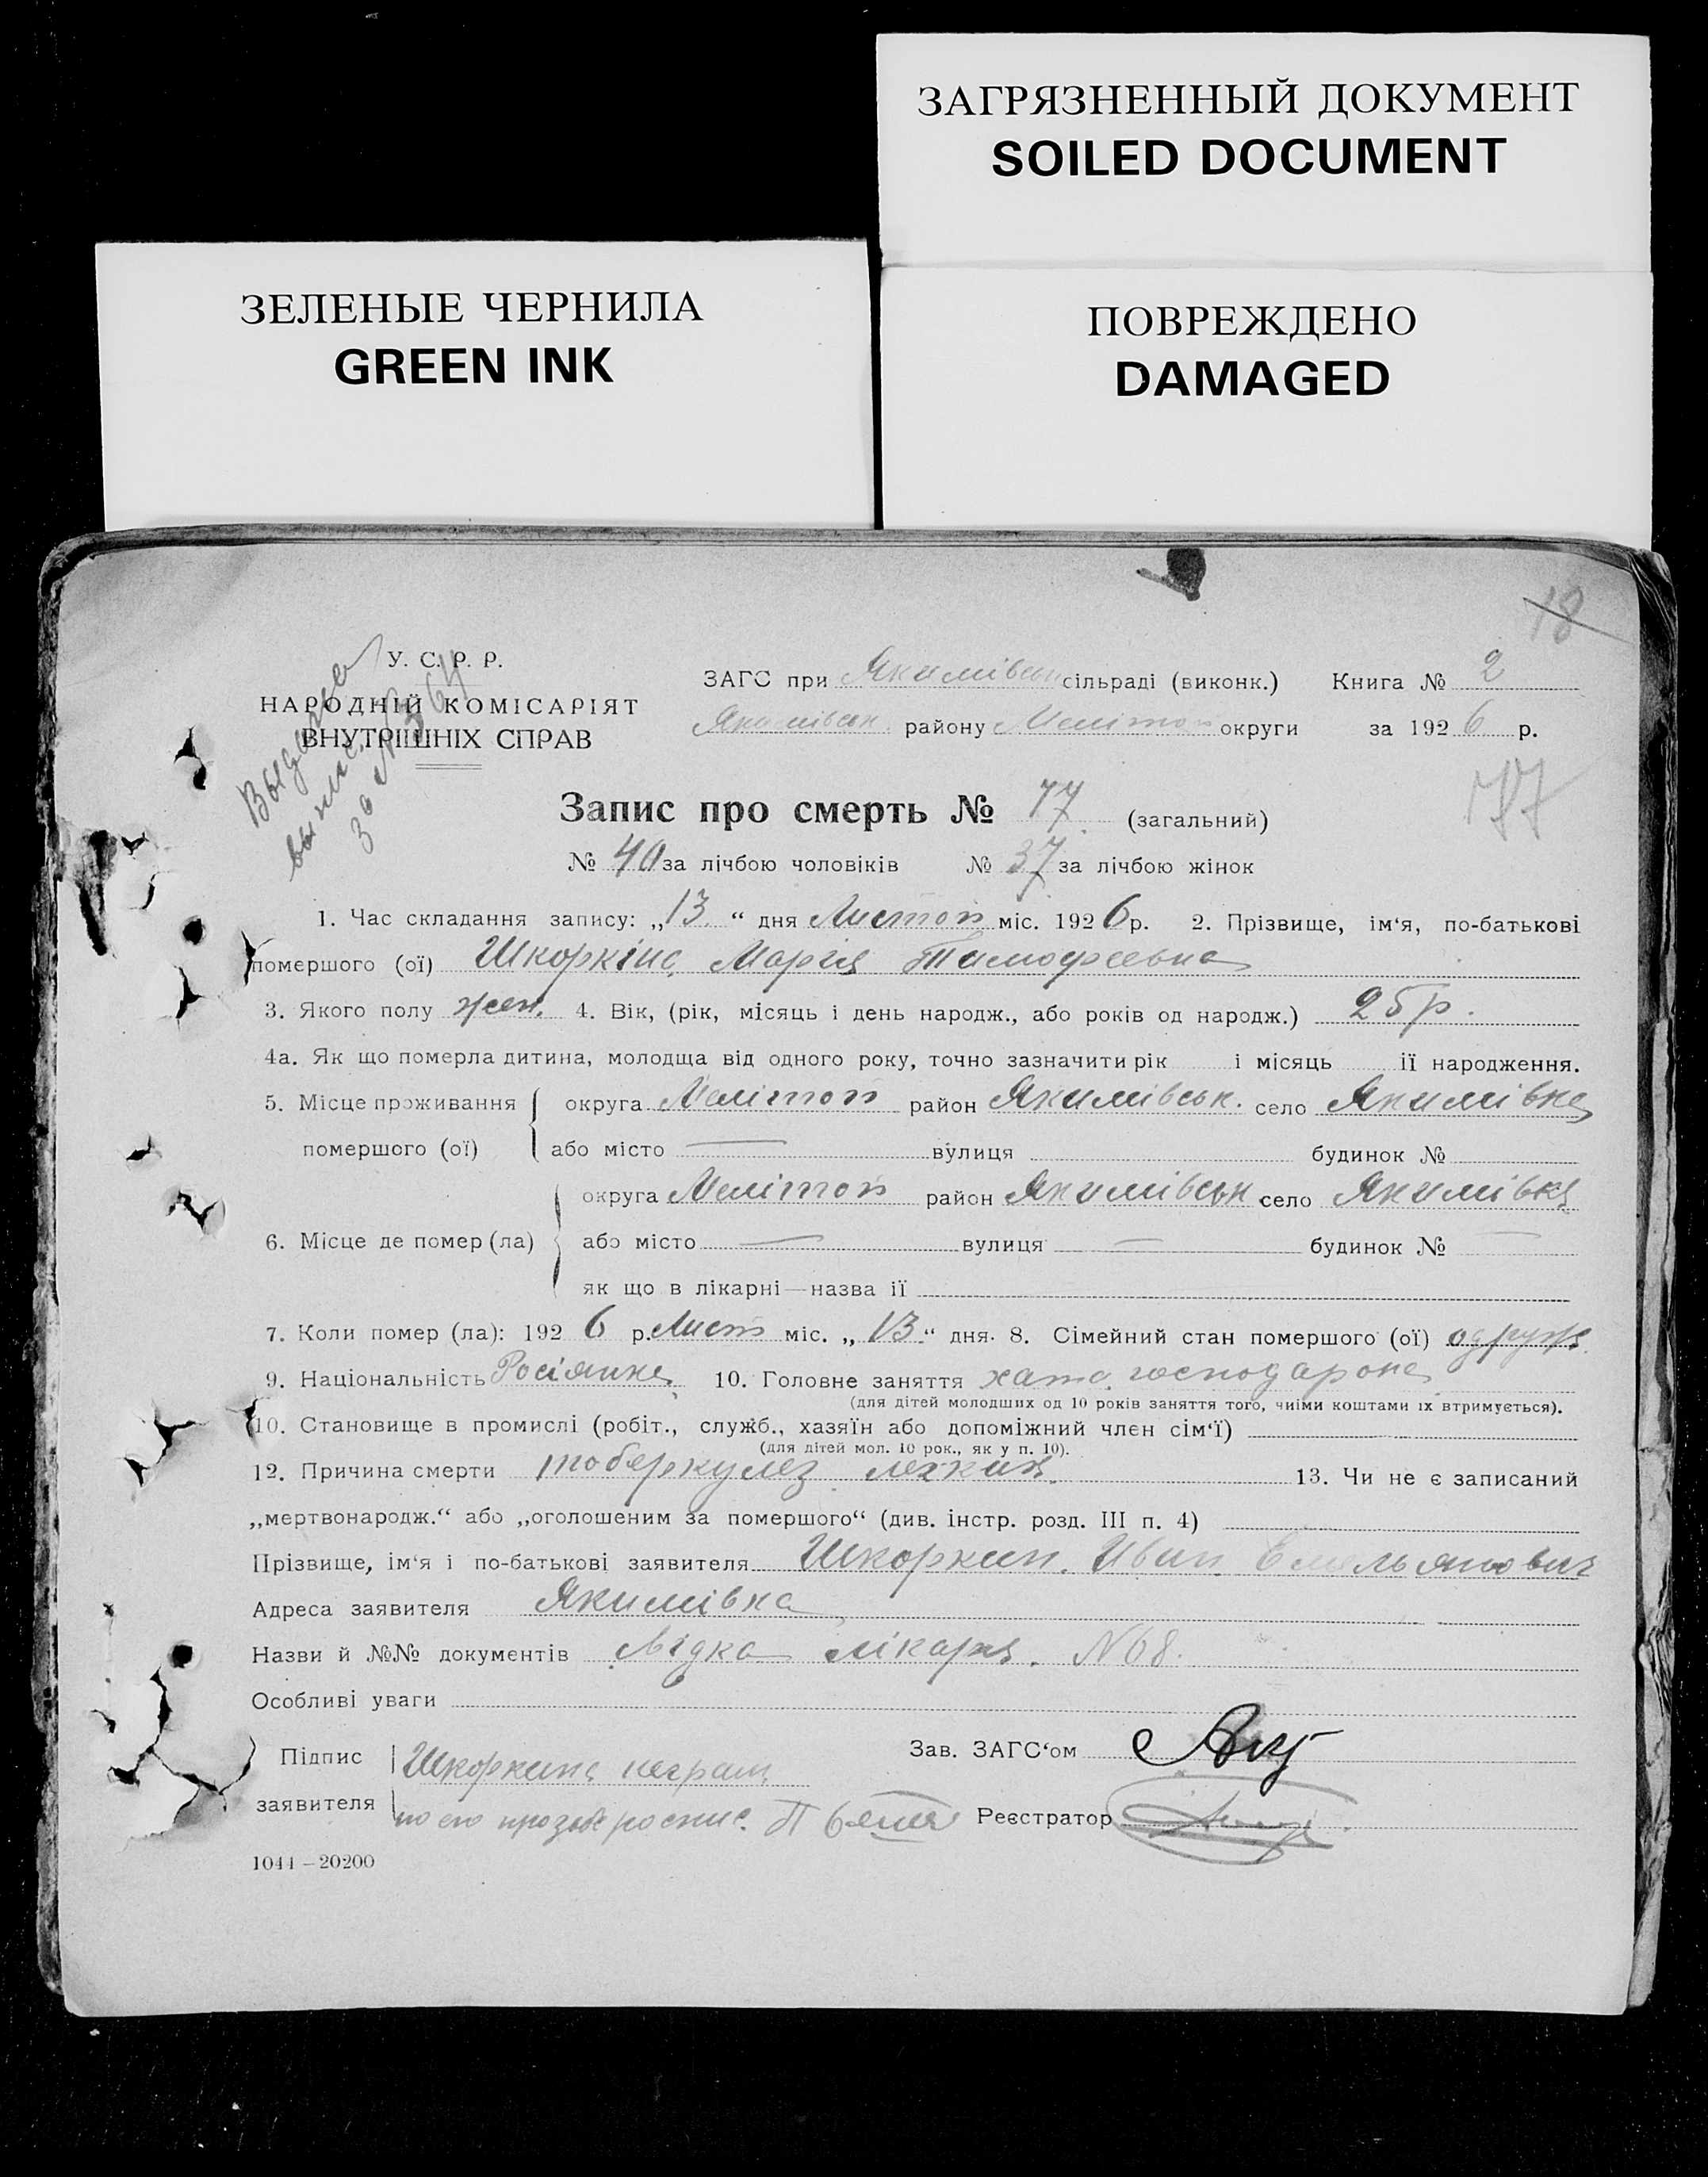 ЗАГРЯЗНЕННЫЙ ДОКУМЕНТ
SOILED DOCUMENT
ЗЕЛЕНЫЕ ЧЕРНИЛА
GREEN INK
ПОВРЕЖДЕНО
DAMAGED
18
У. С. Р. Р.
НАРОДНІЙ КОМІСАРІЯТ
ВНУТРІШНІХ СПРАВ
ЗАГС при Якимівськ сільраді (виконк.) Книга № 2
Якимівськ району Мелітоп округи за 1926 р.
77
Запис про смерть № 77 (загальний)
№ 40 за лічбою чоловіків № 37 за лічбою жінок
1. Час складання запису: „13“ дня Листоп міс. 1926 р. 2. Прізвище, ім‘я, по-батькові
помершого (ої) Шкоркіна Марія Тимофеевна
3. Якого полу жен. 4. Вік, (рік, місяць і день народж., або років од народж.) 25 р.
4а. Як що померла дитина, молодща від одного року, точно зазначити рік і місяць її народження.
5. Місце проживання помершого (ої) округа Мелітоп район Якимівськ. село Якимівка
або місто — вулиця будинок №
6. Місце де помер (ла) округа Мелітоп район Якимівськ село Якимівка
або місто — вулиця — будинок № —
як що в лікарні—назва її
7. Коли помер (ла): 1926 р. Лист міс. „13“ дня. 8. Сімейний стан помершого (ої) одруж.
9. Національність Росіянка 10. Головне заняття хатн. господарка
(для дітей молодших од 10 років заняття того, чиїми коштами їх втримується).
10. Становище в промислі (робіт., служб., хазяїн або допоміжний член сім‘ї)
(для дітей мол. 10 рок., як у п. 10).
12. Причина смерти тоберкулез легких. 13. Чи не є записаний
„мертвонародж.“ або „оголошеним за помершого“ (див. інстр. розд. III п. 4)
Прізвище, ім‘я і по-батькові заявителя Шкоркин Иван Емельянович
Адреса заявителя Якимівка
Назви й №№ документів лікаря. №68.
Особливі уваги
Підпис заявителя Шкоркина неграм
по его прозьбе роспис.
Зав. ЗАГС‘ом
Реєстратор
1044—20200